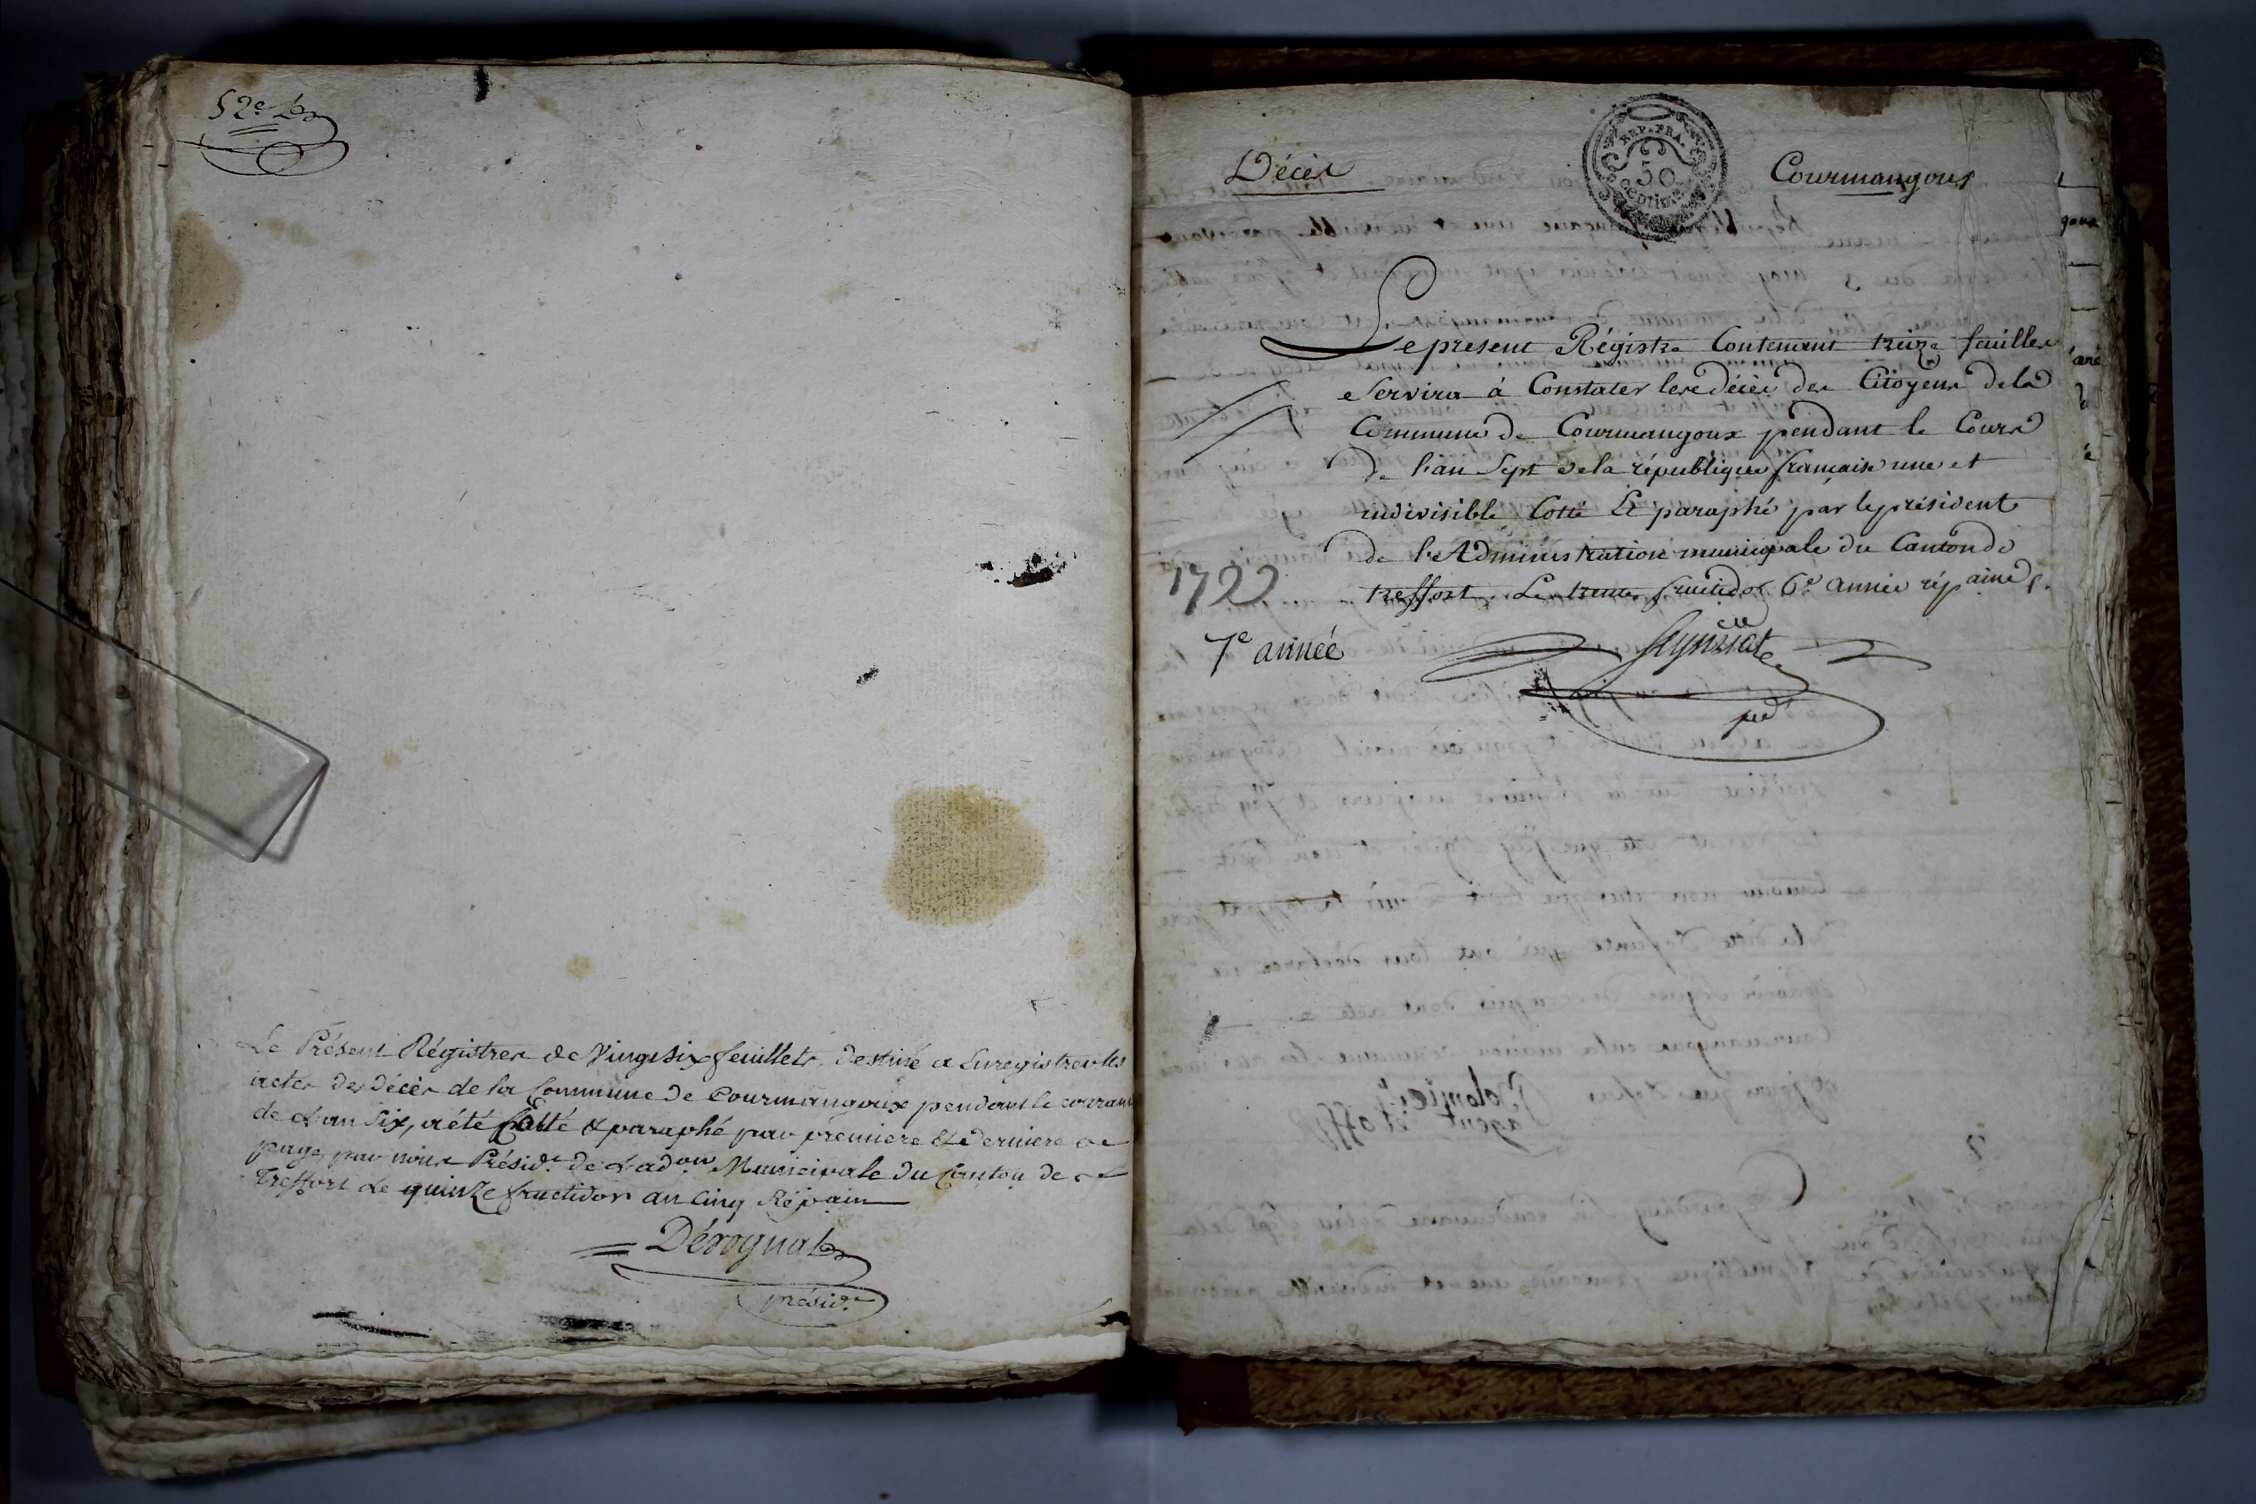 52e
Le Présent Régistre de Vingt six feuillets, destiné a Enregistrer les
actes de décès de la Commune de Courmangoux pendant le courant
de L'an Six, a été Cotté & paraphé par premiere & derniere
page, par nous Présid.t de L'ad.on Municipale du Canton de
Treffort Le quinze fructidor an Cinq Répain
Dérognat
présid.t
Décès
REP. FRA.
50
Centimes
Courmangoux
Le present Régistre Contenant treize feuilles
Servira à Constater les décès des Citoyens de la
Commune de Courmangoux pendant le Cours
de l'an Sept de la république française une et
indivisible Cotté Et paraphé par le président
de l'Administration municipale du Canton de
treffort. Le trente fructidor 6e année répaine.
1799
7e année
pdt